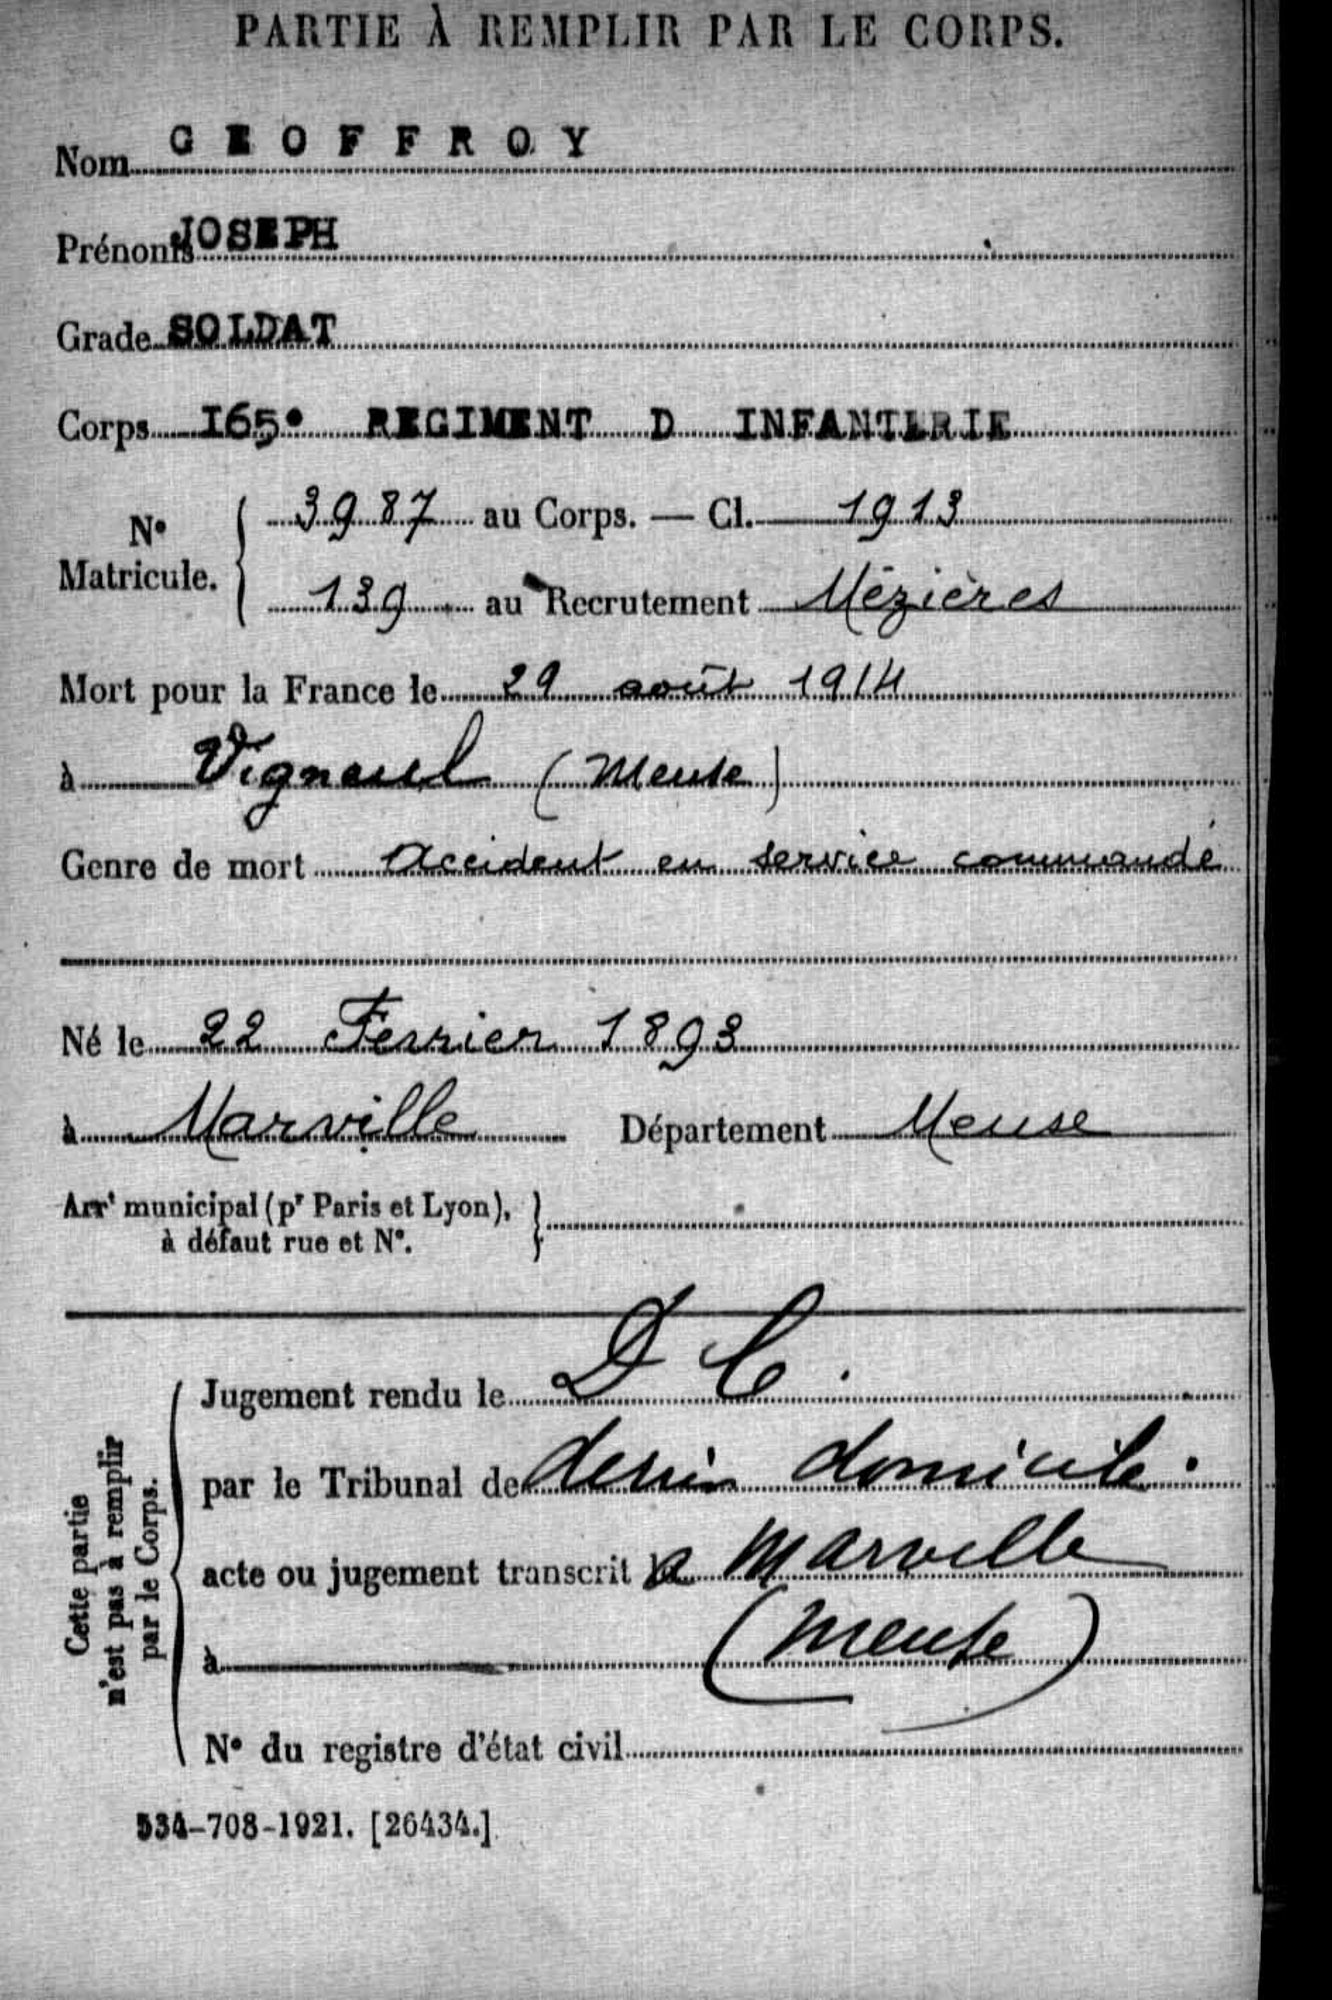 PARTIE À REMPLIR PAR LE CORPS.
Nom GEOFFROY
Prénoms JOSEPH
Grade SOLDAT
Corps I65e REGIMENT D INFANTERIE
No Matricule. { 3987 au Corps. — Cl. 1913
139 au Recrutement Mézières
Mort pour la France le 29 août 1914
à Vigneul (Meuse)
Genre de mort Accident en service commandé
Né le 22 Fevrier 1893
à Marville Département Meuse
Arrt municipal (pr Paris et Lyon), }
à défaut rue et No.
Jugement rendu le D C.
par le Tribunal de domicile.
acte ou jugement transcrit a Marville
à (Meuse)
No du registre d'état civil
Cette partie
n'est pas à remplir
par le Corps.
534-708-1921. [26434.]